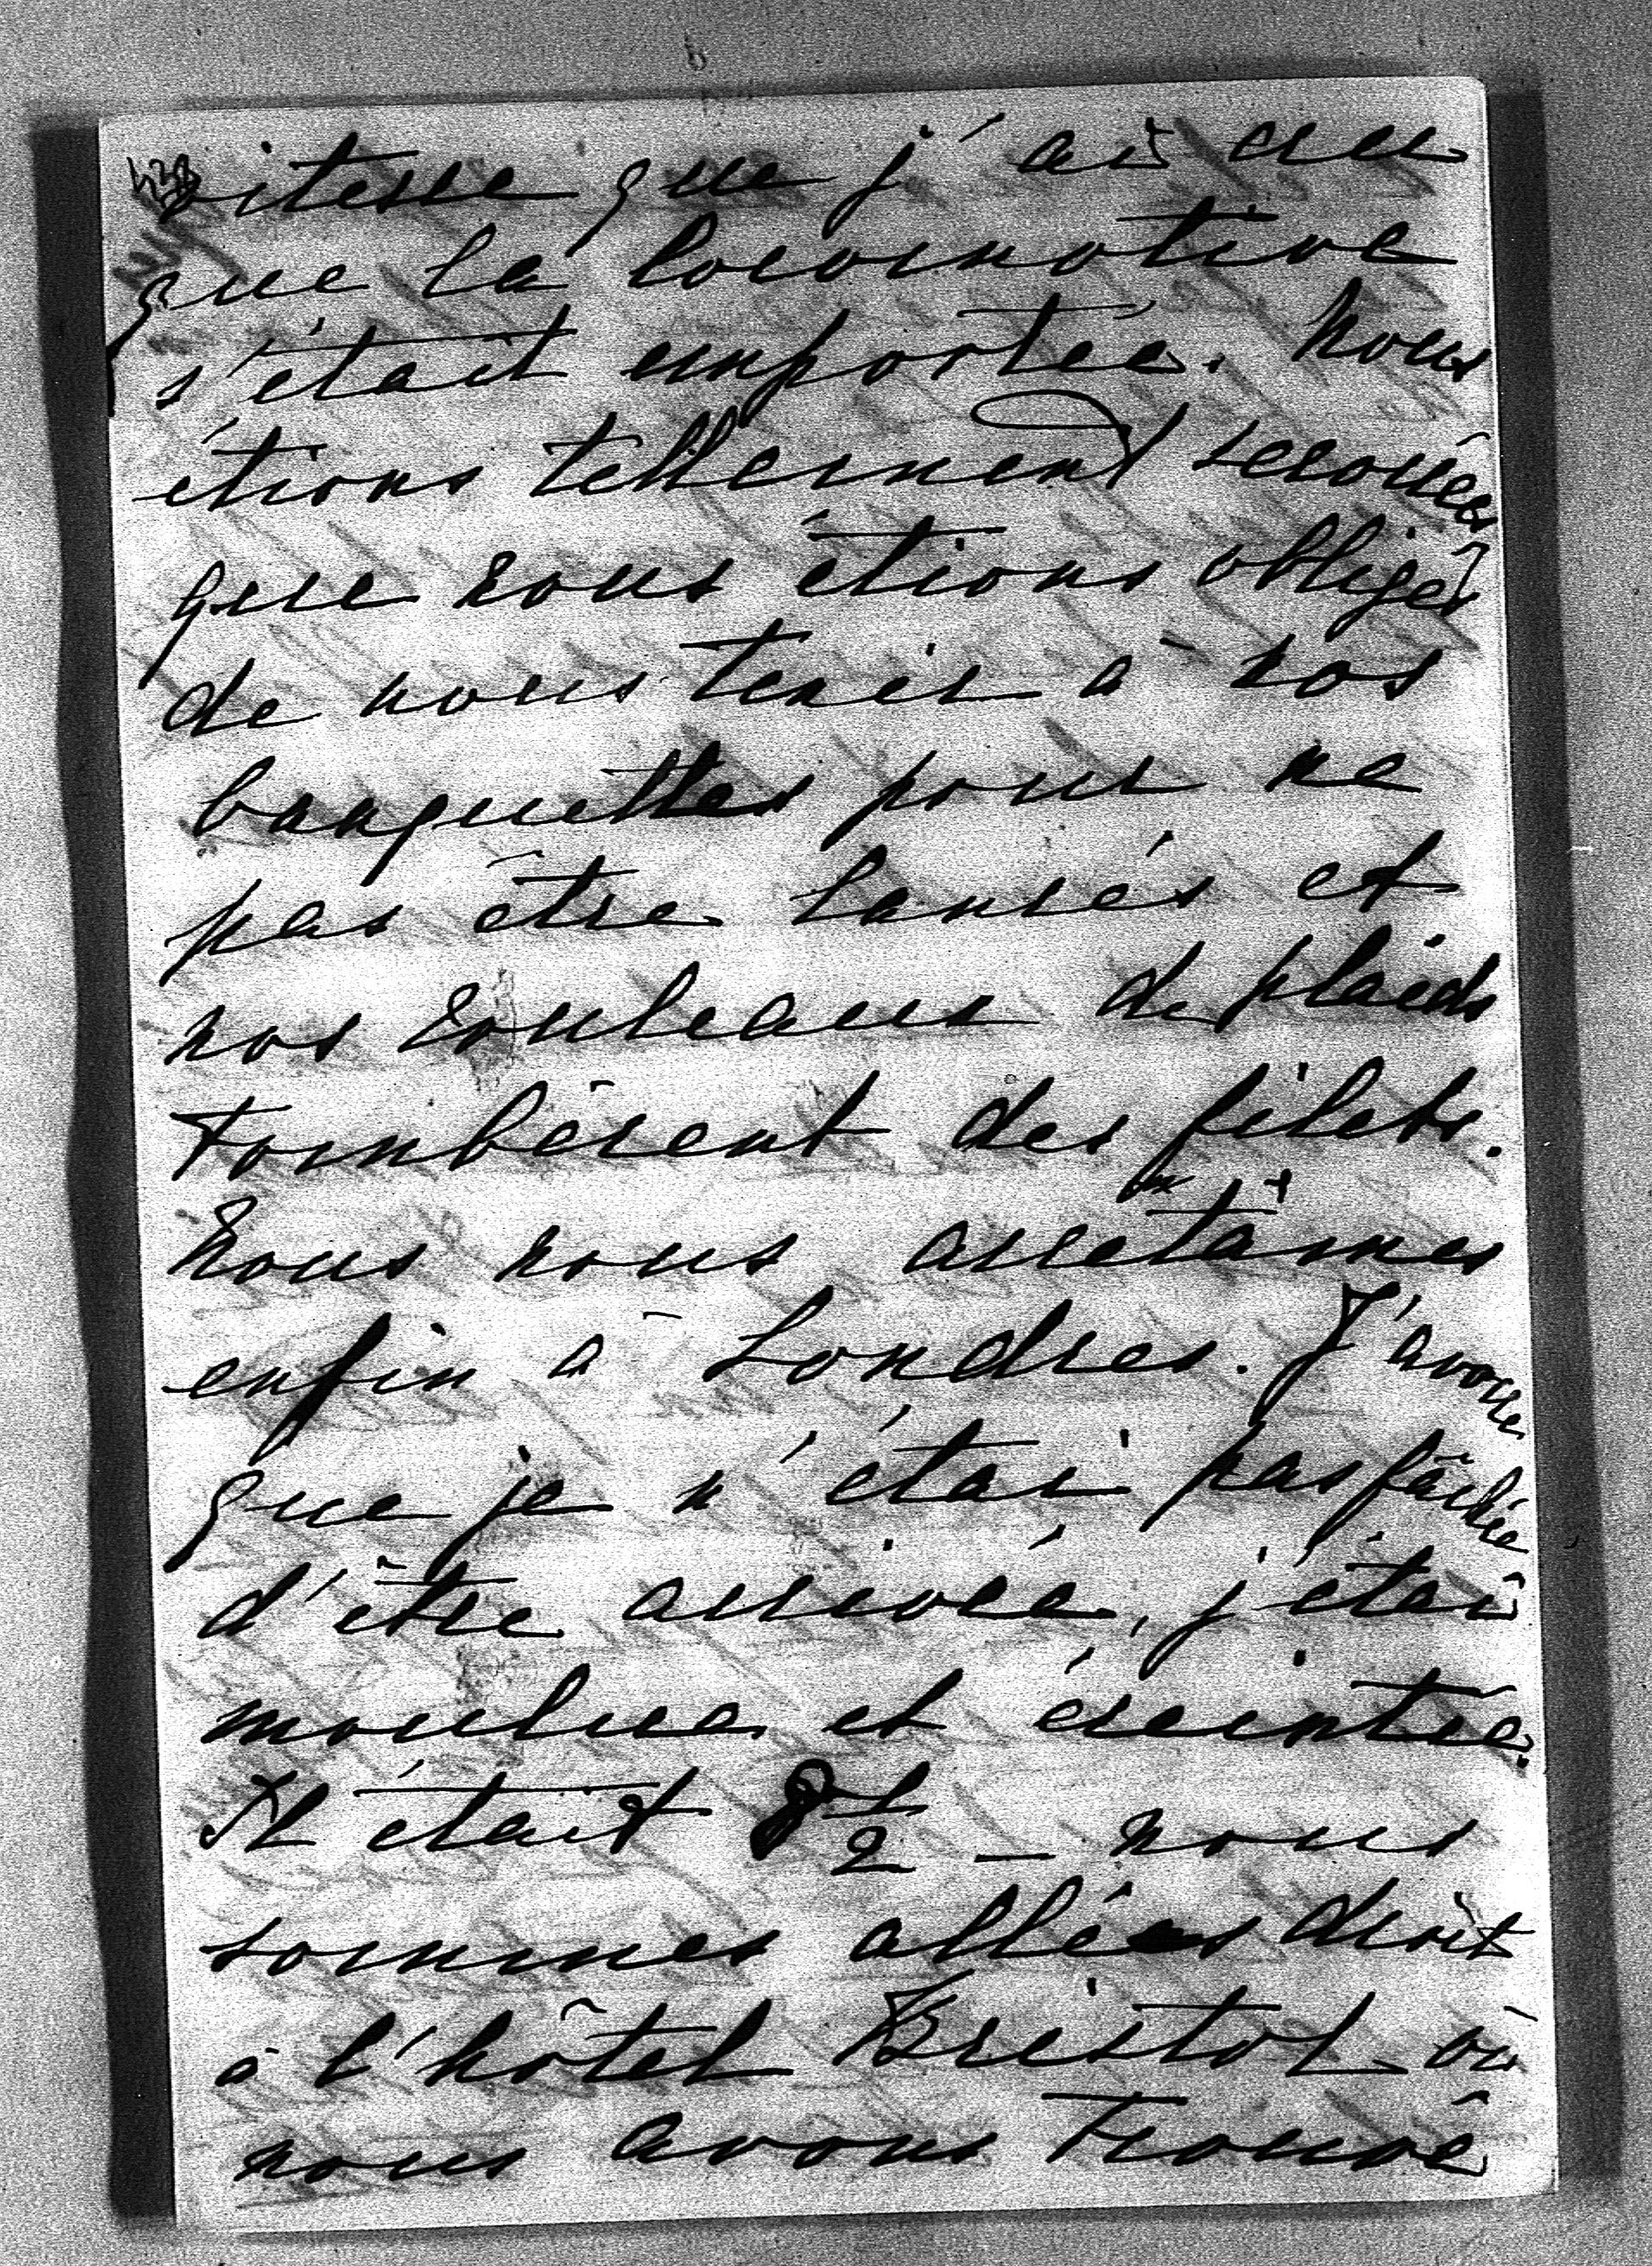 vitesse que j'ai cru
que la locomotive
s'était emportée. Nous
étions tellement secouées
que nous étions obligés
de nous tenir à nos
banquettes pour ne
pas être lancés et
nos rouleaux de plaids
tombèrent des filets.
Nous nous arretâmes
enfin à Londres. J'avoue
que je n'étai pas fâchée
d'être arrivée, j'étais
moulue et éreintée.
Il était 8 1/2 — nous
sommes allées droit
à l'hôtel Bristol où
nous avons trouvé